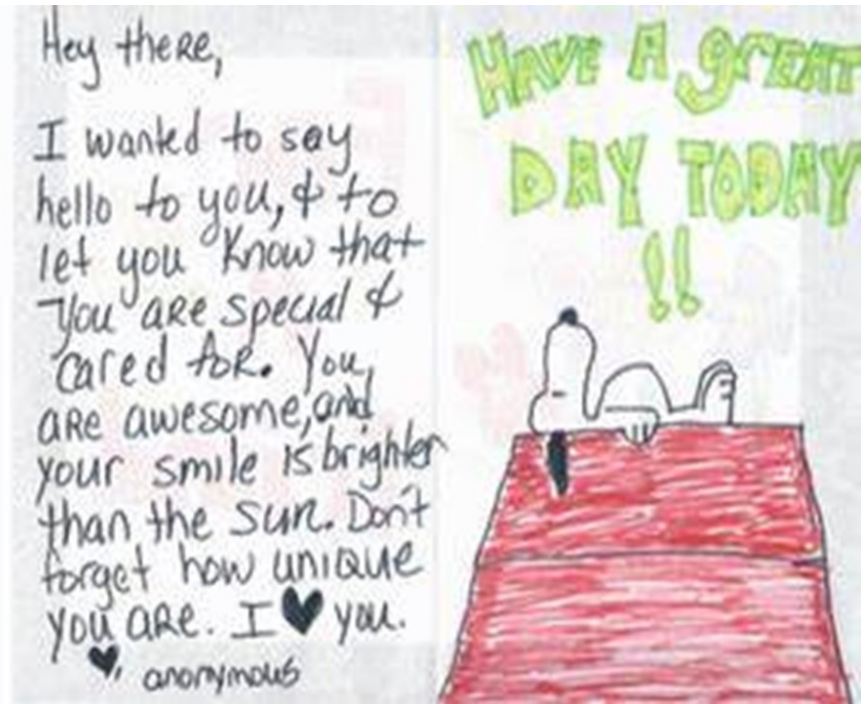 Hey there,
I wanted to say
hello to you, & to
let you know that
you are special &
cared for. You
are awesome, and
your smile is brighter
than the sun. Don't
forget how unique
you are. I ♥ you.
♥, anonymous
HAVE A gREAT
DAY TODAY
!!